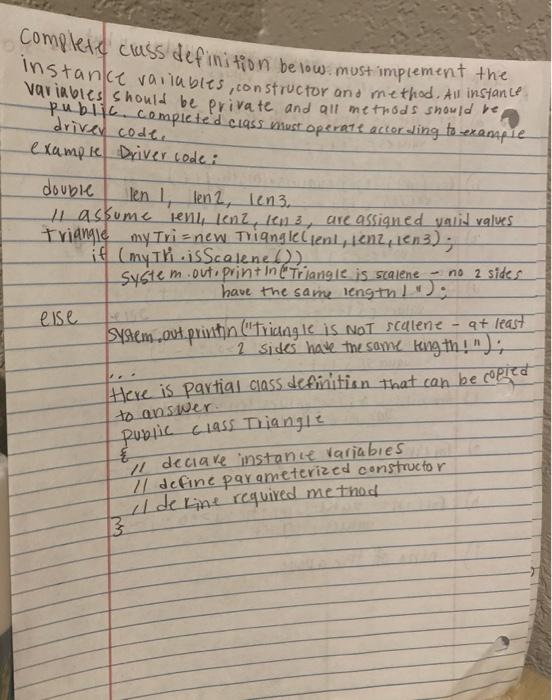 Complete class definition below. must implement the
instance variables, constructor and method. All instance
variables should be private and all methods should be
public. completed class must operate according to example
driver code.
example Driver code:
double len1, len2, len3,
// assume len1, len2, len3, are assigned valid values
Triangle myTri = new Triangle(len1, len2, len3);
if (myTri.isScalene())
system.out.println("Triangle is scalene - no 2 sides
have the same length!");
else
System.out.println("Triangle is NOT scalene - at least
2 sides have the same length!");
...
Here is partial class definition that can be copied
to answer.
public class Triangle
{
// declare instance variables
// define parameterized constructor
// define required method
}